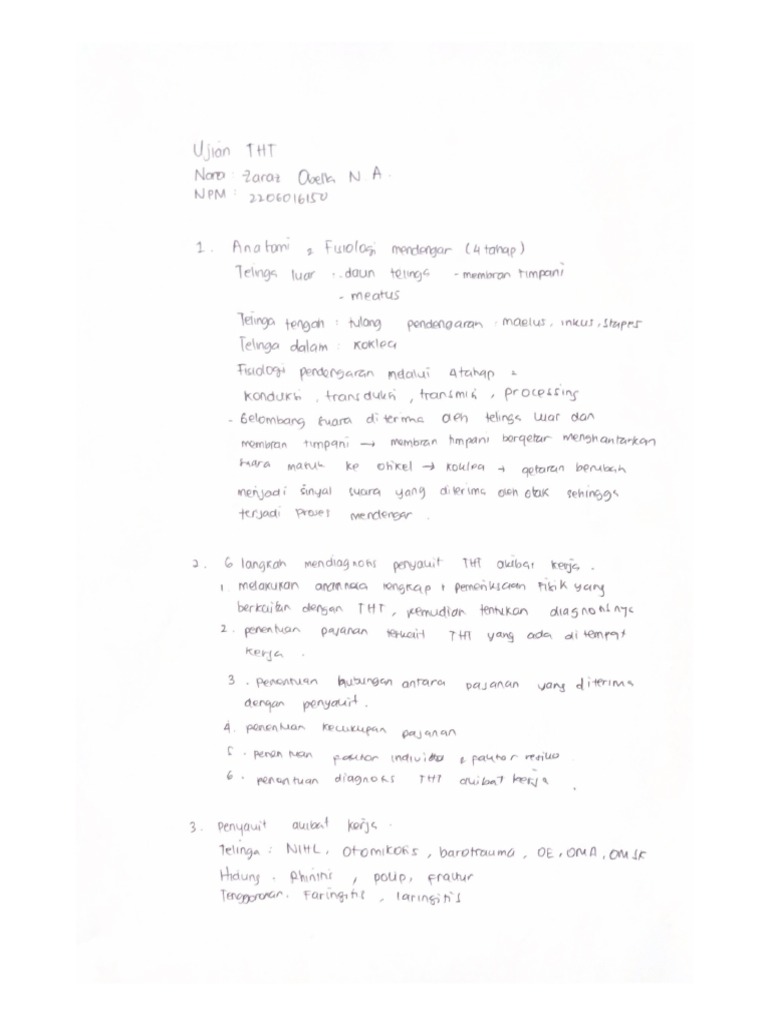 Ujian THT
Nama : Zaraz Obella N A.
NPM : 2206016150
1. Anatomi & Fisiologi mendengar (4 tahap)
Telinga luar : - daun telinga - membran timpani
- meatus
Telinga tengah : tulang pendengaran : maelus, inkus, stapes
Telinga dalam : koklea
Fisiologi pendengaran melalui 4 tahap :
konduksi, transduksi, transmisi, processing
- Gelombang suara diterima oleh telinga luar dan
membran timpani → membran timpani bergetar menghantarkan
suara masuk ke osikel → koklea → getaran berubah
menjadi sinyal suara yang diterima oleh otak sehingga
terjadi proses mendengar.
2. 6 langkah mendiagnosis penyakit THT akibat kerja.
1. melakukan anamnesa lengkap + pemeriksaan fisik yang
berkaitan dengan THT, kemudian tentukan diagnosisnya
2. penentuan pajanan terkait THT yang ada di tempat
kerja.
3. penentuan hubungan antara pajanan yang diterima
dengan penyakit.
4. penentuan kecukupan pajanan
5. penentuan faktor individu & faktor resiko
6. penentuan diagnosis THT akibat kerja.
3. Penyakit akibat kerja.
Telinga : NIHL, otomikosis, barotrauma, OE, OMA, OMSK
Hidung : Rhinitis, polip, fraktur
Tenggorokan. Faringitis, laringitis